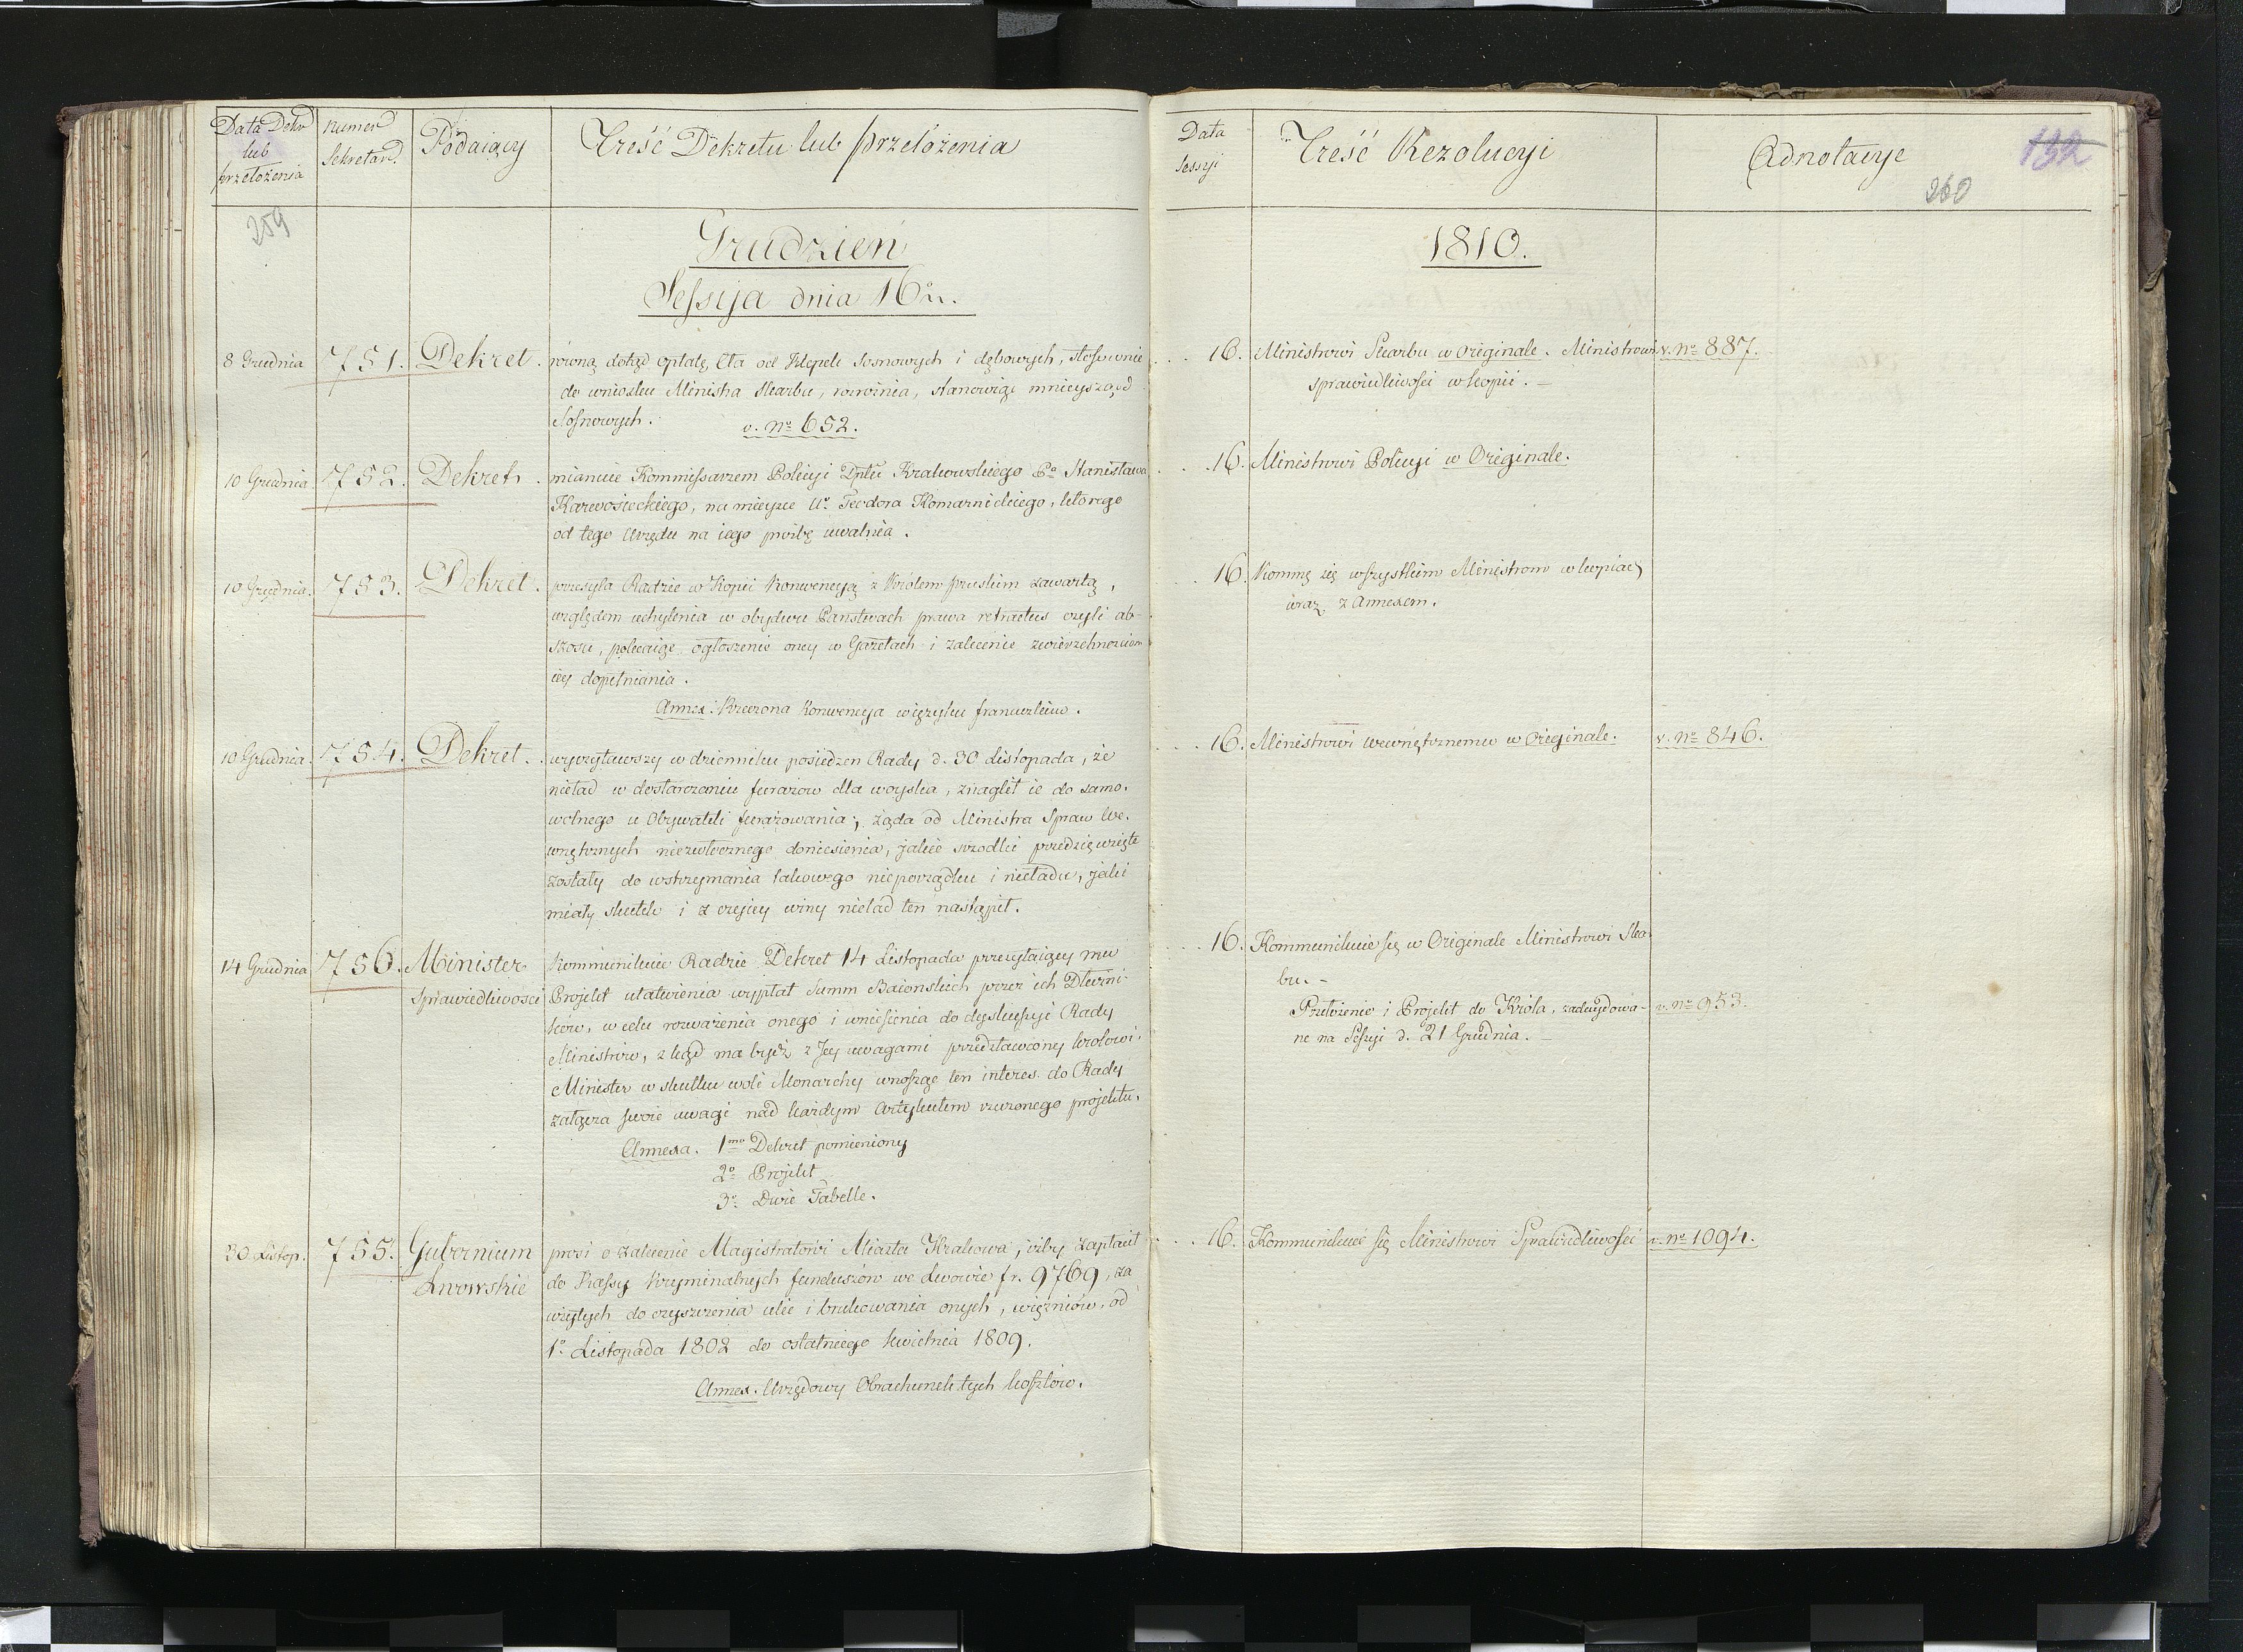 Data Dekr
lub
przełożenia
numer
Sekretard.
Podaiący
Treść Dekretu lub przełożenia
259
Grudzień
Sessya dnia 16º
8 Grudnia
751.
Dekret.
równą dotąd opłatę, Cła od klepek sosnowych i dębowych, stosownie
do wniosku Ministra Skarbu, rozróżnia, stanowiąc mnieyszą od
sosnowych.
v. Nº 652.
10 Grudnia
752.
Dekret.
mianuie Kommissarzem Policyi Dptu Krakowskiego Pº Stanisława
Karwosieckiego, na mieysce Uº Teodora Komarnickiego, którego
od tego Urzędu na iego prośbę uwalnia.
10 Grudnia.
753.
Dekret.
przesyła Radzie w Kopii Konwencyą z Królem pruskim zawartą,
względem uchylenia w obydwu Państwach prawa retractus czyli ab-
szosu, polecaiąc ogłoszenie oney w Gazetach i zalecenie zwierzchnościom
iey dopełniania.
Annex: Rzeczona Konwencya w ięzyku francuzkim.
10 Grudnia.
754.
Dekret.
wyczytawszy w dzienniku posiedzeń Rady d. 30 Listopada, że
nieład w dostarczaniu furażów dla woyska, znaglił ie do samo-
wolnego u Obywateli furażowania, żąda od Ministra Spraw We-
wnętrznych niezwłocznego doniesienia, jakie szrodki przedzięwzięte
zostały do wstrzymania takowego nieporządku i nieładu, jaki
miały skutek i z czyiey winy nieład ten nastąpił.
14 Grudnia
756.
Minister
Sprawiedliwości
Kommunikuie Radzie Dekret 14 Listopada przesyłaiący mu
Projekt ułatwienia wypłat Summ Baiońskich przez ich Dłużni-
ków, w celu rozważenia onego i wniesienia do dyskussyi Rady
Ministrów, zkąd ma bydź z Jey uwagami przedstawiony Królowi.
Minister w skutku woli Monarchy wnosząc ten interes do Rady
załącza swoie uwagi nad każdym Artykułem rzeczonego projektu.
Annexa. 1mo Dekret pomieniony
2º Projekt
3º Dwie Tabelle.
30 Listop.
755.
Gubernium
Lwowskie
prosi o zalecenie Magistratowi Miasta Krakowa, iżby zapłacił
do Kassy kryminalnych funduszów we Lwowie fr. 9769, za
użytych do czyszczenia ulic i brukowania onych, więźniów, od
1º Listopada 1802 do ostatniego kwietnia 1809.
Annex. Urzędowy Obrachunek tych kosztów.
Data
Sessyi
Treść Rezolucyi
Adnotacye
132
260
1810.
16. Ministrowi Skarbu w Originale. Ministrowi
sprawiedliwości w kopii. –
v. nº 887.
16. Ministrowi Policyi w Originale.
16. Kommę się wszystkim Ministrom w kopiach
wraz z Annexem.
16. Ministrowi wewnętrznemu w Originale.
v. nº 846.
16. Kommunikuie się w Originale Ministrowi Skar
bu. –
Przełożenie i Projekt do Króla, zadecydowa-
ne na Sessyi d. 21 Grudnia. –
v. nº 953.
16. Kommunikuie się Ministrowi Sprawiedliwości
v. nº 1094.